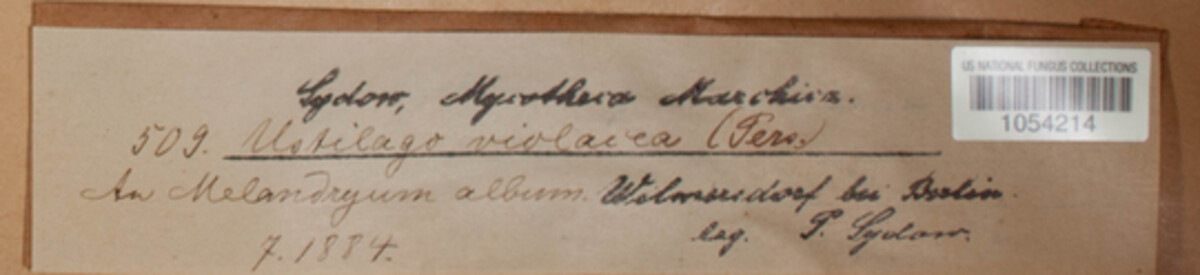 US NATIONAL FUNGUS COLLECTIONS
1054214
Sydow, Mycotheca Marchica.
509. Ustilago violacea (Pers.)
An Melandryum album. Wilmersdorf bei Berlin.
7. 1884. leg. P. Sydow.